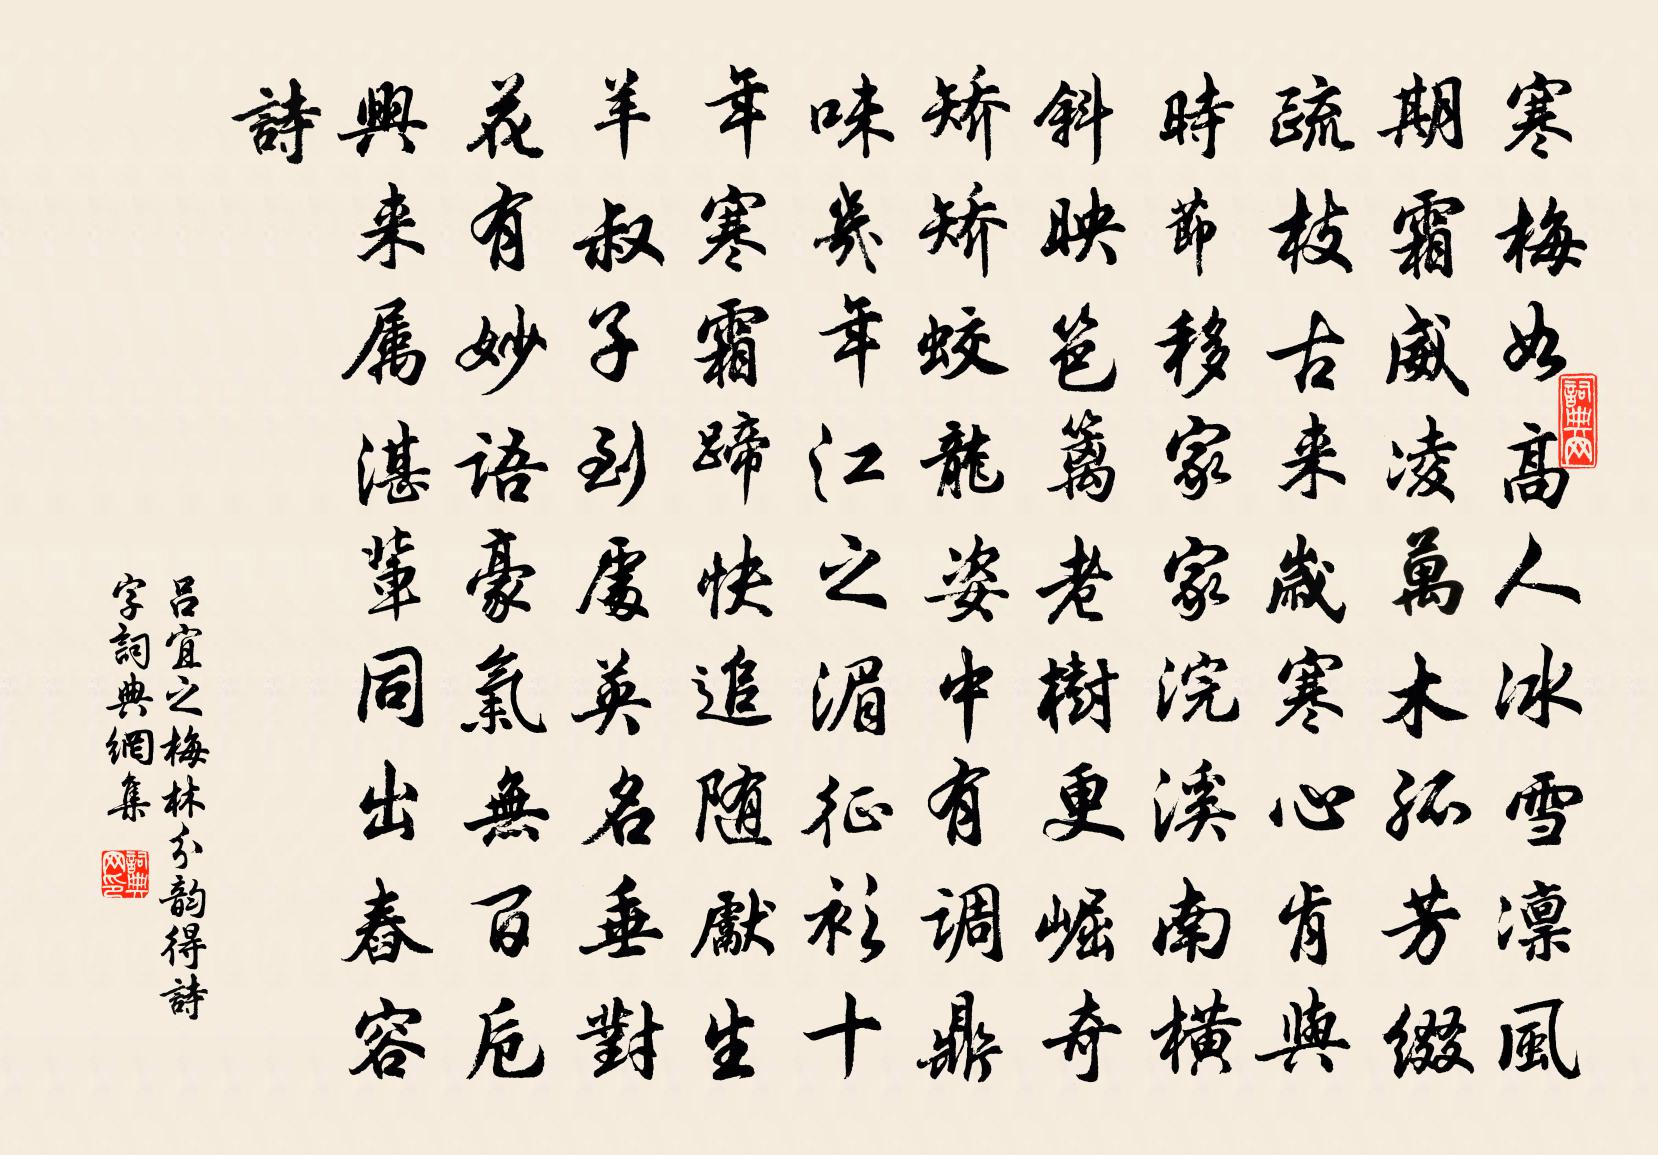 寒梅如高人冰雪凛風
期霜威凌萬木孤芳綴
疏枝古来歲寒心肯與
時節移家家浣溪南橫
斜映笆籬老樹更崛奇
矫矫蛟龍姿中有调鼎
味幾年江之湄征衫十
年寒霜蹄快追随獻生
羊叔子到處英名垂對
花有妙語豪氣無百卮
興来属湛輩同出舂容
詩
吕宜之梅林分韵得詩
字詞典網集
詞典网
詞典网印